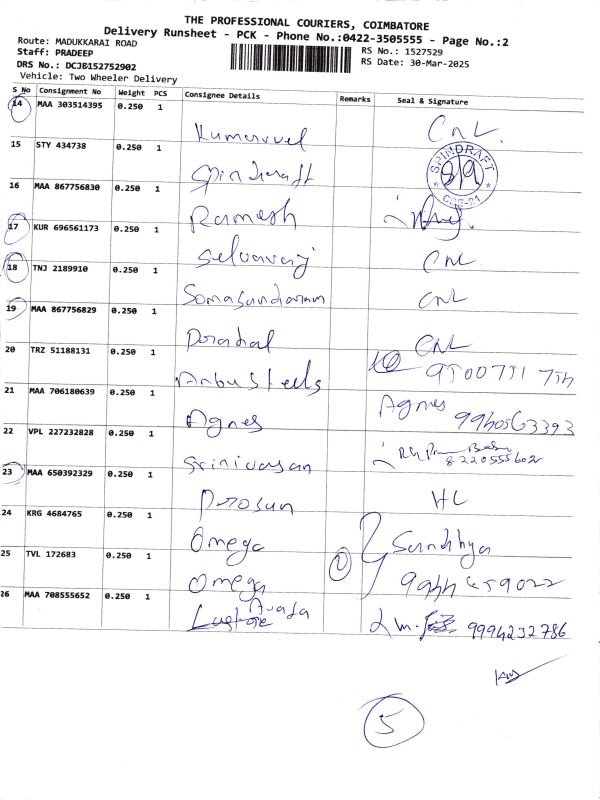 THE PROFESSIONAL COURIERS, COIMBATORE
Delivery Runsheet - PCK - Phone No.:0422-3505555 - Page No.:2
Route: MADUKKARAI ROAD
Staff: PRADEEP
DRS No.: DCJB152752902
Vehicle: Two Wheeler Delivery
RS No.: 1527529
RS Date: 30-Mar-2025
S No Consignment No Weight PCS Consignee Details Remarks Seal & Signature
14 MAA 303514395 0.250 1 Kumaravel CNL
15 STY 434738 0.250 1 Spindraft SPINDRAFT CBE-21
16 MAA 867756830 0.250 1 Ramesh
17 KUR 696561173 0.250 1 Selvaraj CNL
18 TNJ 2189910 0.250 1 Somasundaram CNL
19 MAA 867756829 0.250 1 CNL
20 TRZ 51188131 0.250 1 Anbu Steels
21 MAA 706180639 0.250 1 Agnes Agnes 9940563393
22 VPL 227232828 0.250 1 Srinivasan 8220555602
23 MAA 650392329 0.250 1 HL
24 KRG 4684765 0.250 1 Omega Sandhya
25 TVL 172683 0.250 1 Omega 1
26 MAA 708555652 0.250 1 9994232786
5